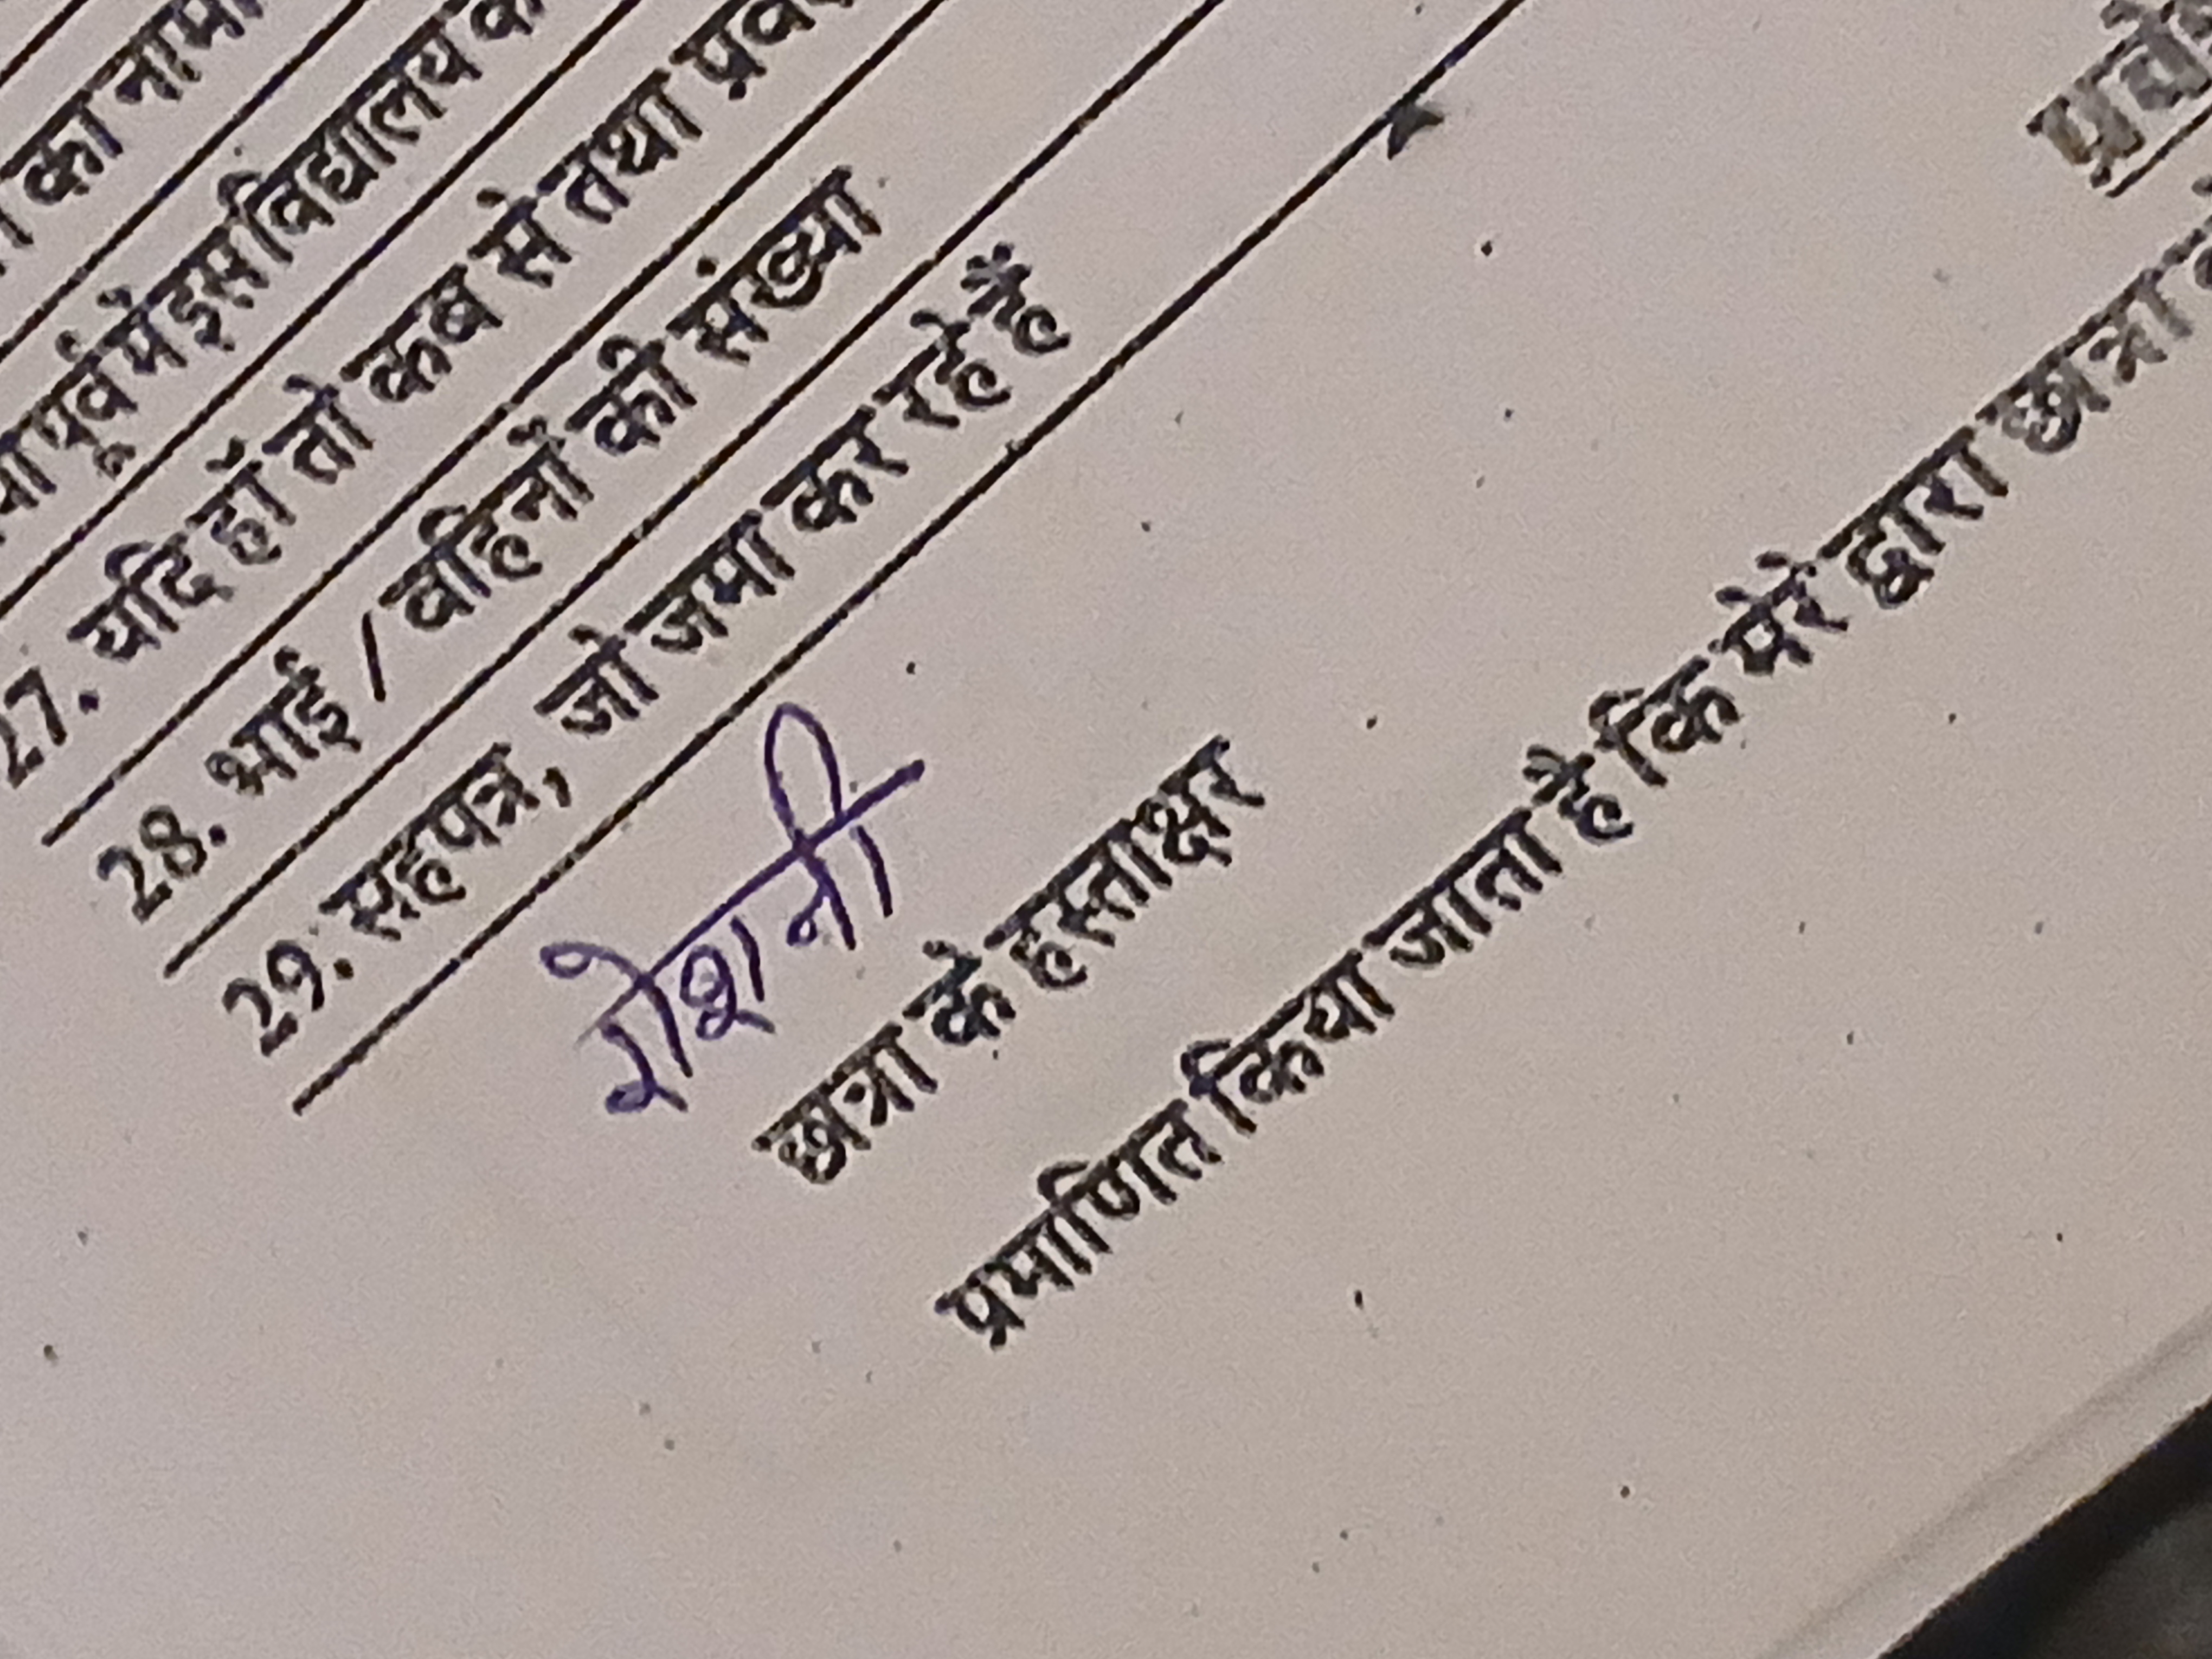 का नाम
पूर्व में इस विद्यालय
27. यदि हाँ तो कब से तथा
28. भाई / बहिनों की संख्या
29. सहपत्र, जो जमा कर रहे हैं
रोशनी
छात्रा के हस्ताक्षर
प्रमाणित किया जाता है कि मेरे द्वारा छात्रा